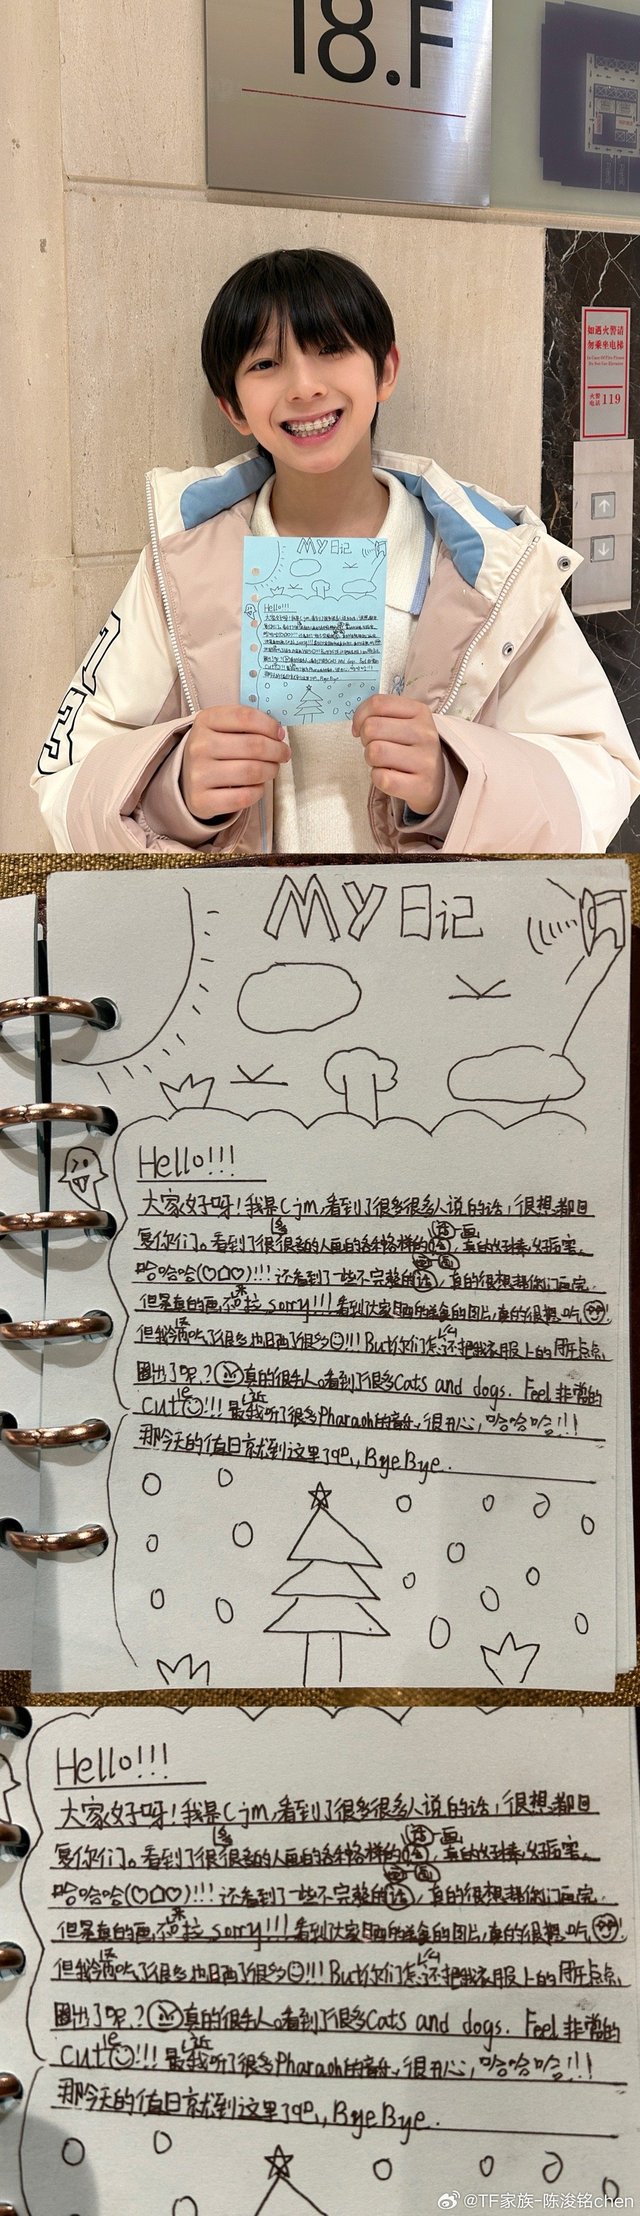 18.F
如遇火警請
勿乘坐电梯
In Case Of Fire Please
Do Not Use Elevator
火警
电话 119
MY 日记
Hello!!!
MY 日记
Hello!!!
大家好呀！我是Cjm,看到了很多很多人说的话，很想都回
复你们。看到了很很多的人画的各种各样的画，真的好棒,好厉害。
哈哈哈(♡口♡)!!! 还看到了一些不完整的画，真的很想帮你们画完，
但是真的画不来拉 sorry!!! 看到大家晒的美食的图片，真的很想吃
但我今天吃了很多也日西了很多!!! But你们怎么还把我衣服上的
圈出了呢？真的很手人。看到了很多Cats and dogs. Feel 非常的
cute!!! 最近我听了很多Pharaoh的音乐，很开心，哈哈哈!!!
那今天的值日就到这里了吧,, ByeBye.
Hello!!!
大家好呀！我是Cjm,看到了很多很多人说的话，很想都回
复你们。看到了很很多的人画的各种各样的画，真的好棒,好厉害。
哈哈哈(♡口♡)!!! 还看到了一些不完整的画，真的很想帮你们画完，
但是真的画不来拉 sorry!!! 看到大家晒的美食的图片，真的很想吃
但我今天吃了很多也日西了很多!!! But你们怎么还把我衣服上的
圈出了呢？真的很手人。看到了很多Cats and dogs. Feel 非常的
cute!!! 最近我听了很多Pharaoh的音乐，很开心，哈哈哈!!!
那今天的值日就到这里了吧,, ByeBye.
@TF家族-陈浚铭chen